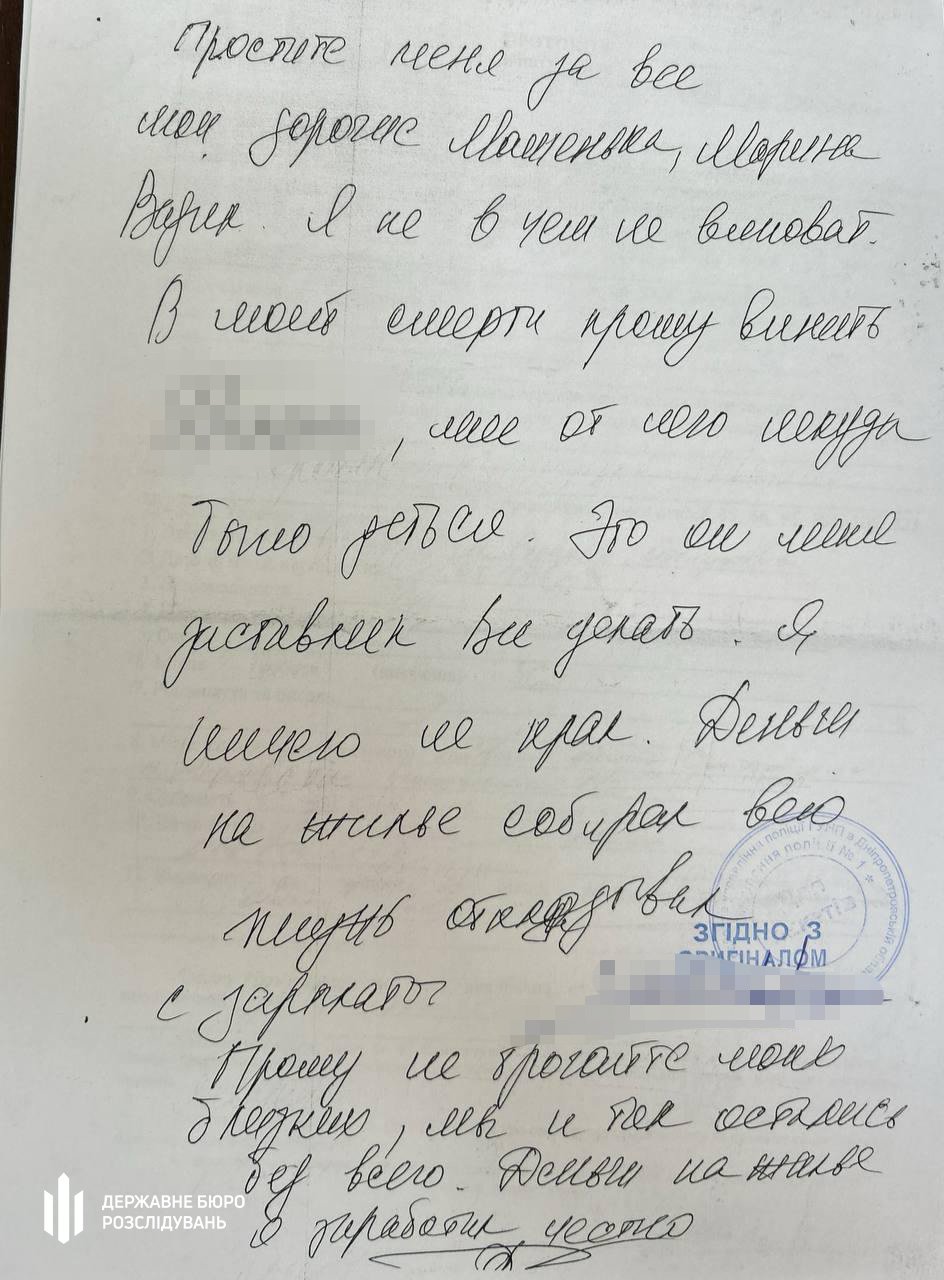 Простите меня за все
мои дорогие Машенька, Марина
Вадик. Я не в чем не виноват.
В моей смерти прошу винить
, мне от него некуда
было деться. Это он меня
заставлял Вы делать. Я
ничего не крал. Деньги
на жилье собирал всю
жизнь откладывал
с зарплаты
Прошу не трогайте моих
близких, мы и так остались
без всего. Деньги на жилье
я заработал честно
управління поліції ГУНП в Дніпропетровській
поліції № 1 *
ЗГІДНО З
ОРИГІНАЛОМ
ДЕРЖАВНЕ БЮРО
РОЗСЛІДУВАНЬ